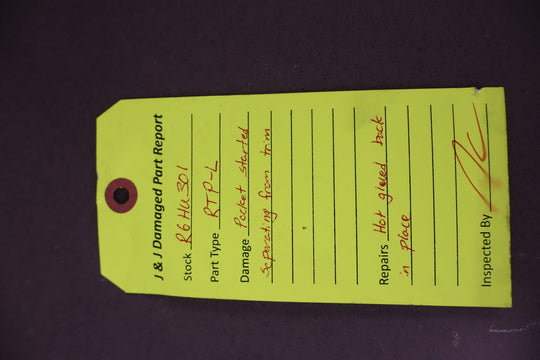 J & J Damaged Part Report
Stock R6HU301
Part Type RTP-L
Damage Pocket started
separating from trim
Repairs Hot glued back
in place
Inspected By